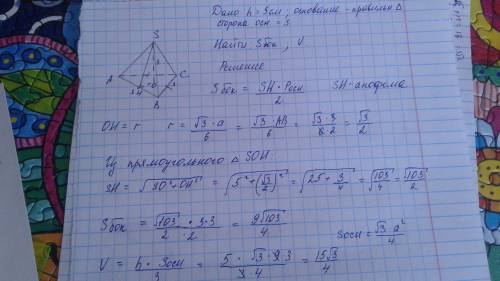 Дано h = 5см; основание - правильн Δ
сторона осн = 3
Найти Sбок, V
Решение
S
A
B
C
H
O
Sбок = SH · Pосн / 2 SH - апофема
OH = r r = √3 · a / 6 = √3 · AB / 6 = √3 · 3 / 6·2 = √3 / 2
Из прямоугольного Δ SOH
SH = √(SO² + OH²) = √(5² + (√3/2)²) = √(25 + 3/4) = √(103/4) = √103 / 2
Sбок = √103 · 3·3 / 2 · 2 = 9√103 / 4
Sосн = √3 a² / 4
V = h · Sосн / 3 = 5 · √3 · 9·3 / 3·4 = 15√3 / 4